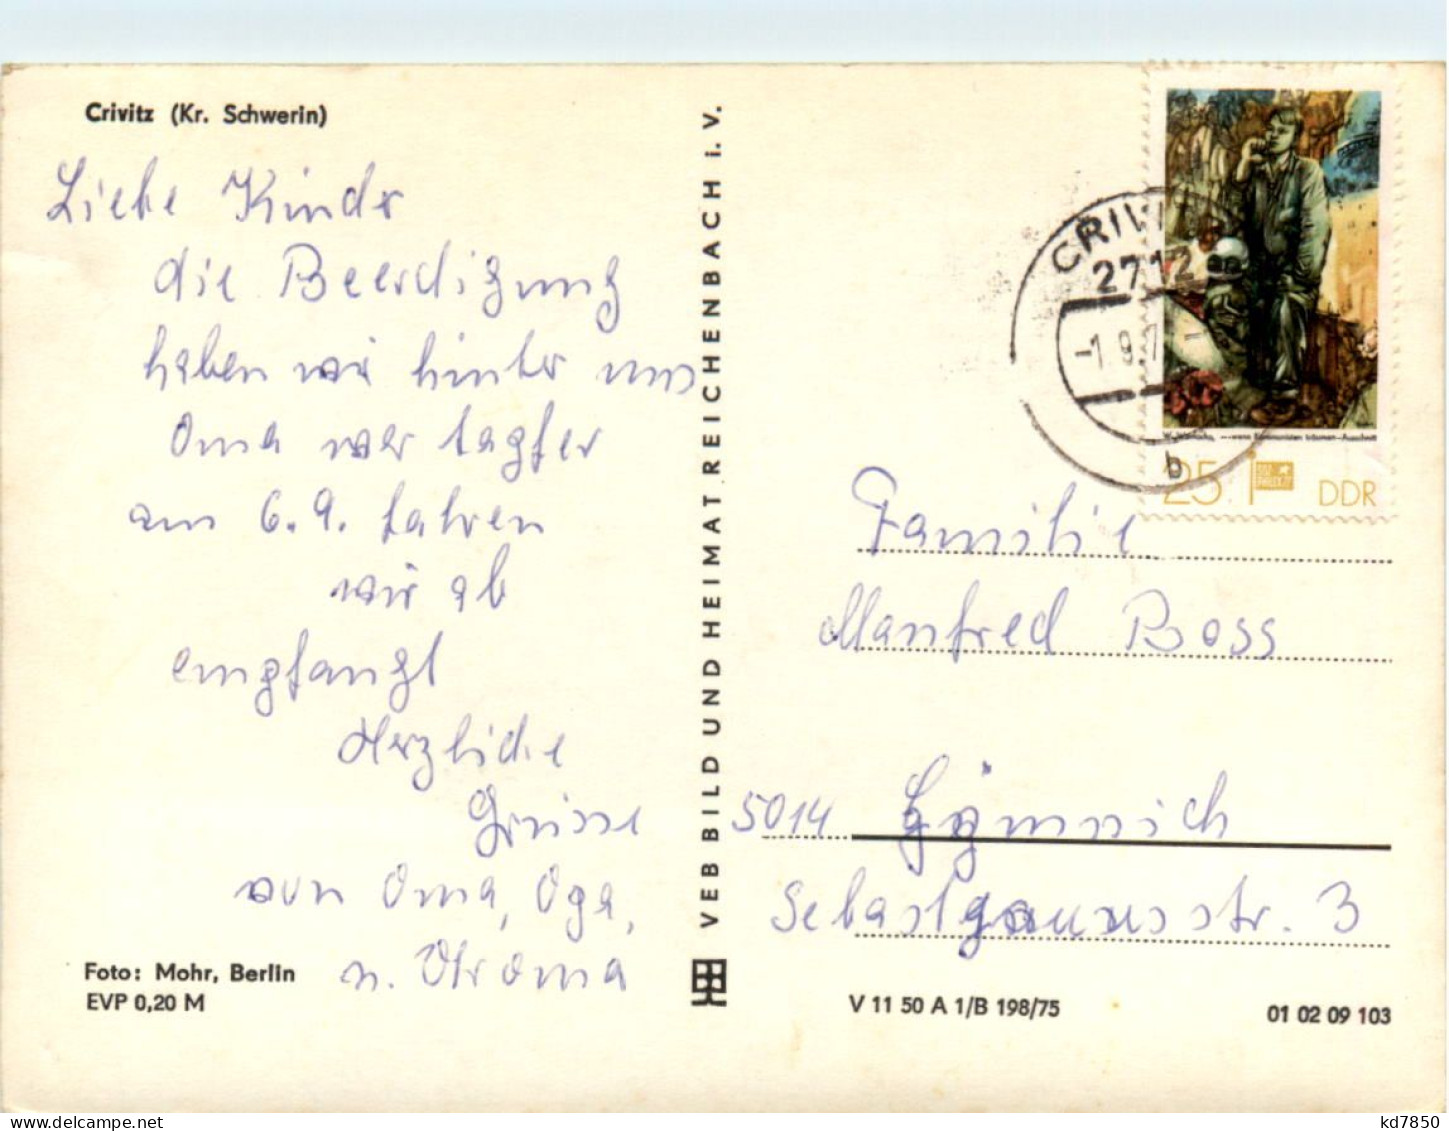 Crivitz (Kr. Schwerin)
Liebe Kinder
die Beerdigung
haben wir hinter uns
Oma war tapfer
am 6.9. fahren
wir ab
empfangt
Herzliche
Grüsse
von Oma, Opa,
u. Uroma
Foto: Mohr, Berlin
EVP 0,20 M
VEB BILD UND HEIMAT REICHENBACH i. V.
CRIVITZ
2712
-1.9.7
b
25
DDR
Familie
Manfred Boss
5014 Gymnich
str. 3
V 11 50 A 1/B 198/75
01 02 09 103
delcampe.net
kd7850